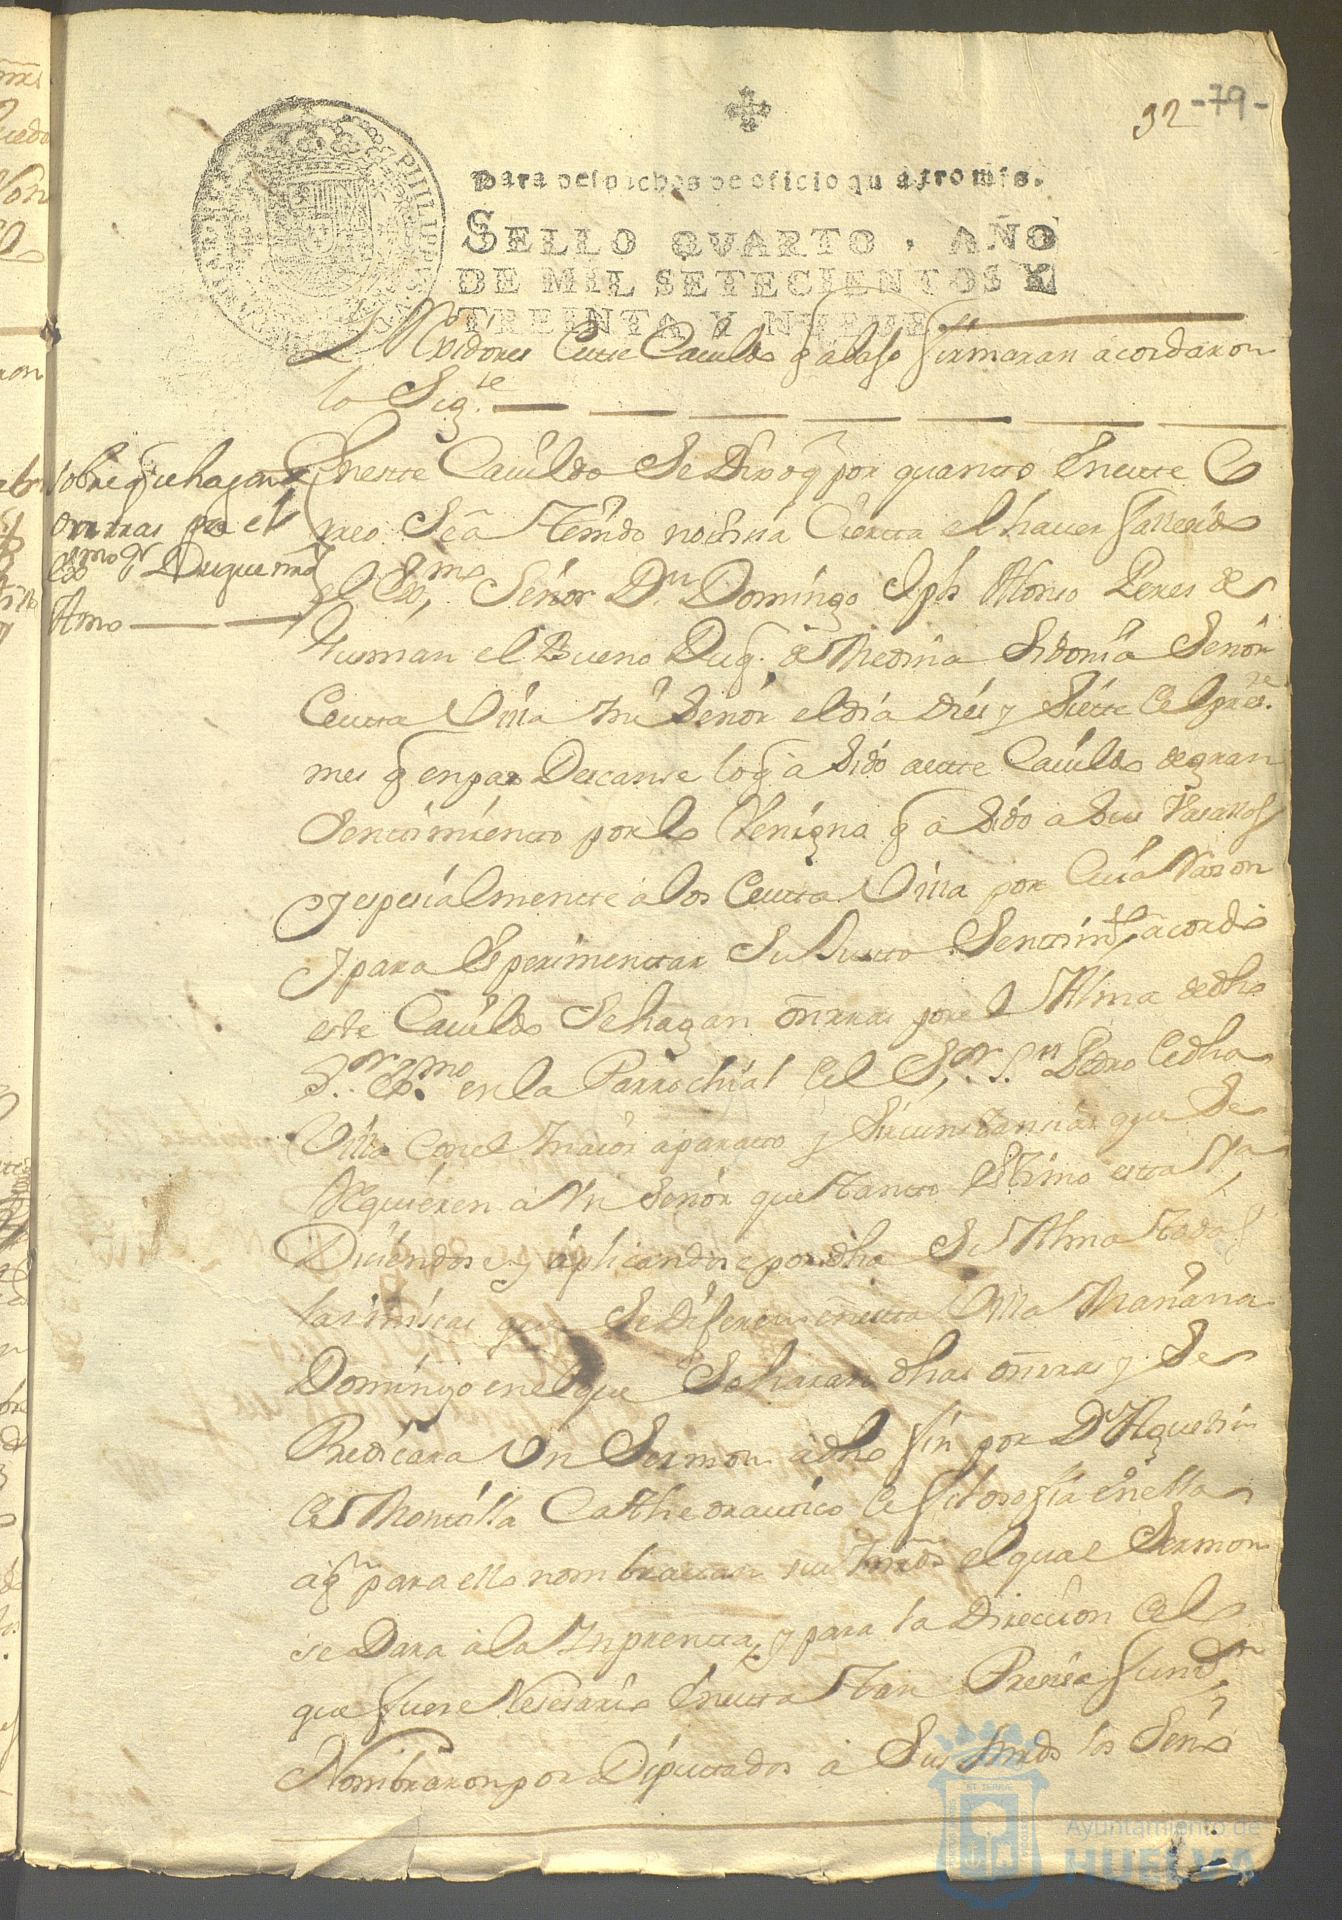 92 -79-
Para despachos de oficio quatro mrs.
SELLO QVARTO, AÑO
DE MIL SETECIENTOS Y
TREINTA Y NUEUE
PHILIPPUS
Rexidores deste Cauildo q abajo firmaran acordaron
lo Sig.te
sobre q se hagan
onrras por el
Exmo Sr Duque mi
Amo
En este Cauildo Se Dixo q por quanto en este Co
rreo Se a tenido notizia Cierta el hauer fallecido
el Exmo Señor Dn Domingo Jph Alonso Peres de
Gusman el Bueno Duq. de Medina Sidonia Señor
desta Villa mi Señor el dia dies y Siete del preste
mes q en paz Descanse lo q a Sido a este Cauildo de gran
Sentimiento por lo Venigna q a Sido a Sus Vasallos
y espesialmente a los desta Villa por Cuia Razon
y para Esperimentar Su Justo Sentimto acordo
este Cauildo Se hagan onrras por el Alma de dho
Sor Exmo en la Parrochial del Sor Sn Pedro de dha
Villa con el maior aparato y Sircunstansias que Se
Requieren a Un Señor que tanto Estimo esta Va
Disiendose y aplicandose por dha Su Alma todas
las misas que Se Dijeren en esta Villa Mañana
Domingo en el que Se haran dhas onrras y Se
Predicara Un Sermon a dho fin por Dn Agustin
de Montilla Cathedratico de filosofia en ella
a qn para ello nombrauan sus mrds el qual Sermon
se Dara a la Inprenta, y para la Direccion del
que fuere Nesesario en esta tan Presisa funsn
Nombraron por Diputados a Sus mrds los Señs
Ayuntamiento de
HUELVA